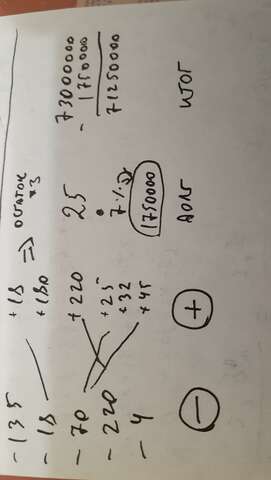 - 135 +18 ⇒ остаток
- 18 +180 *3
- 70 +220 25 - 73000000
1750000
- 220 +25 7%
+32
71250000
- 4 +45 1750000
- + долг итог